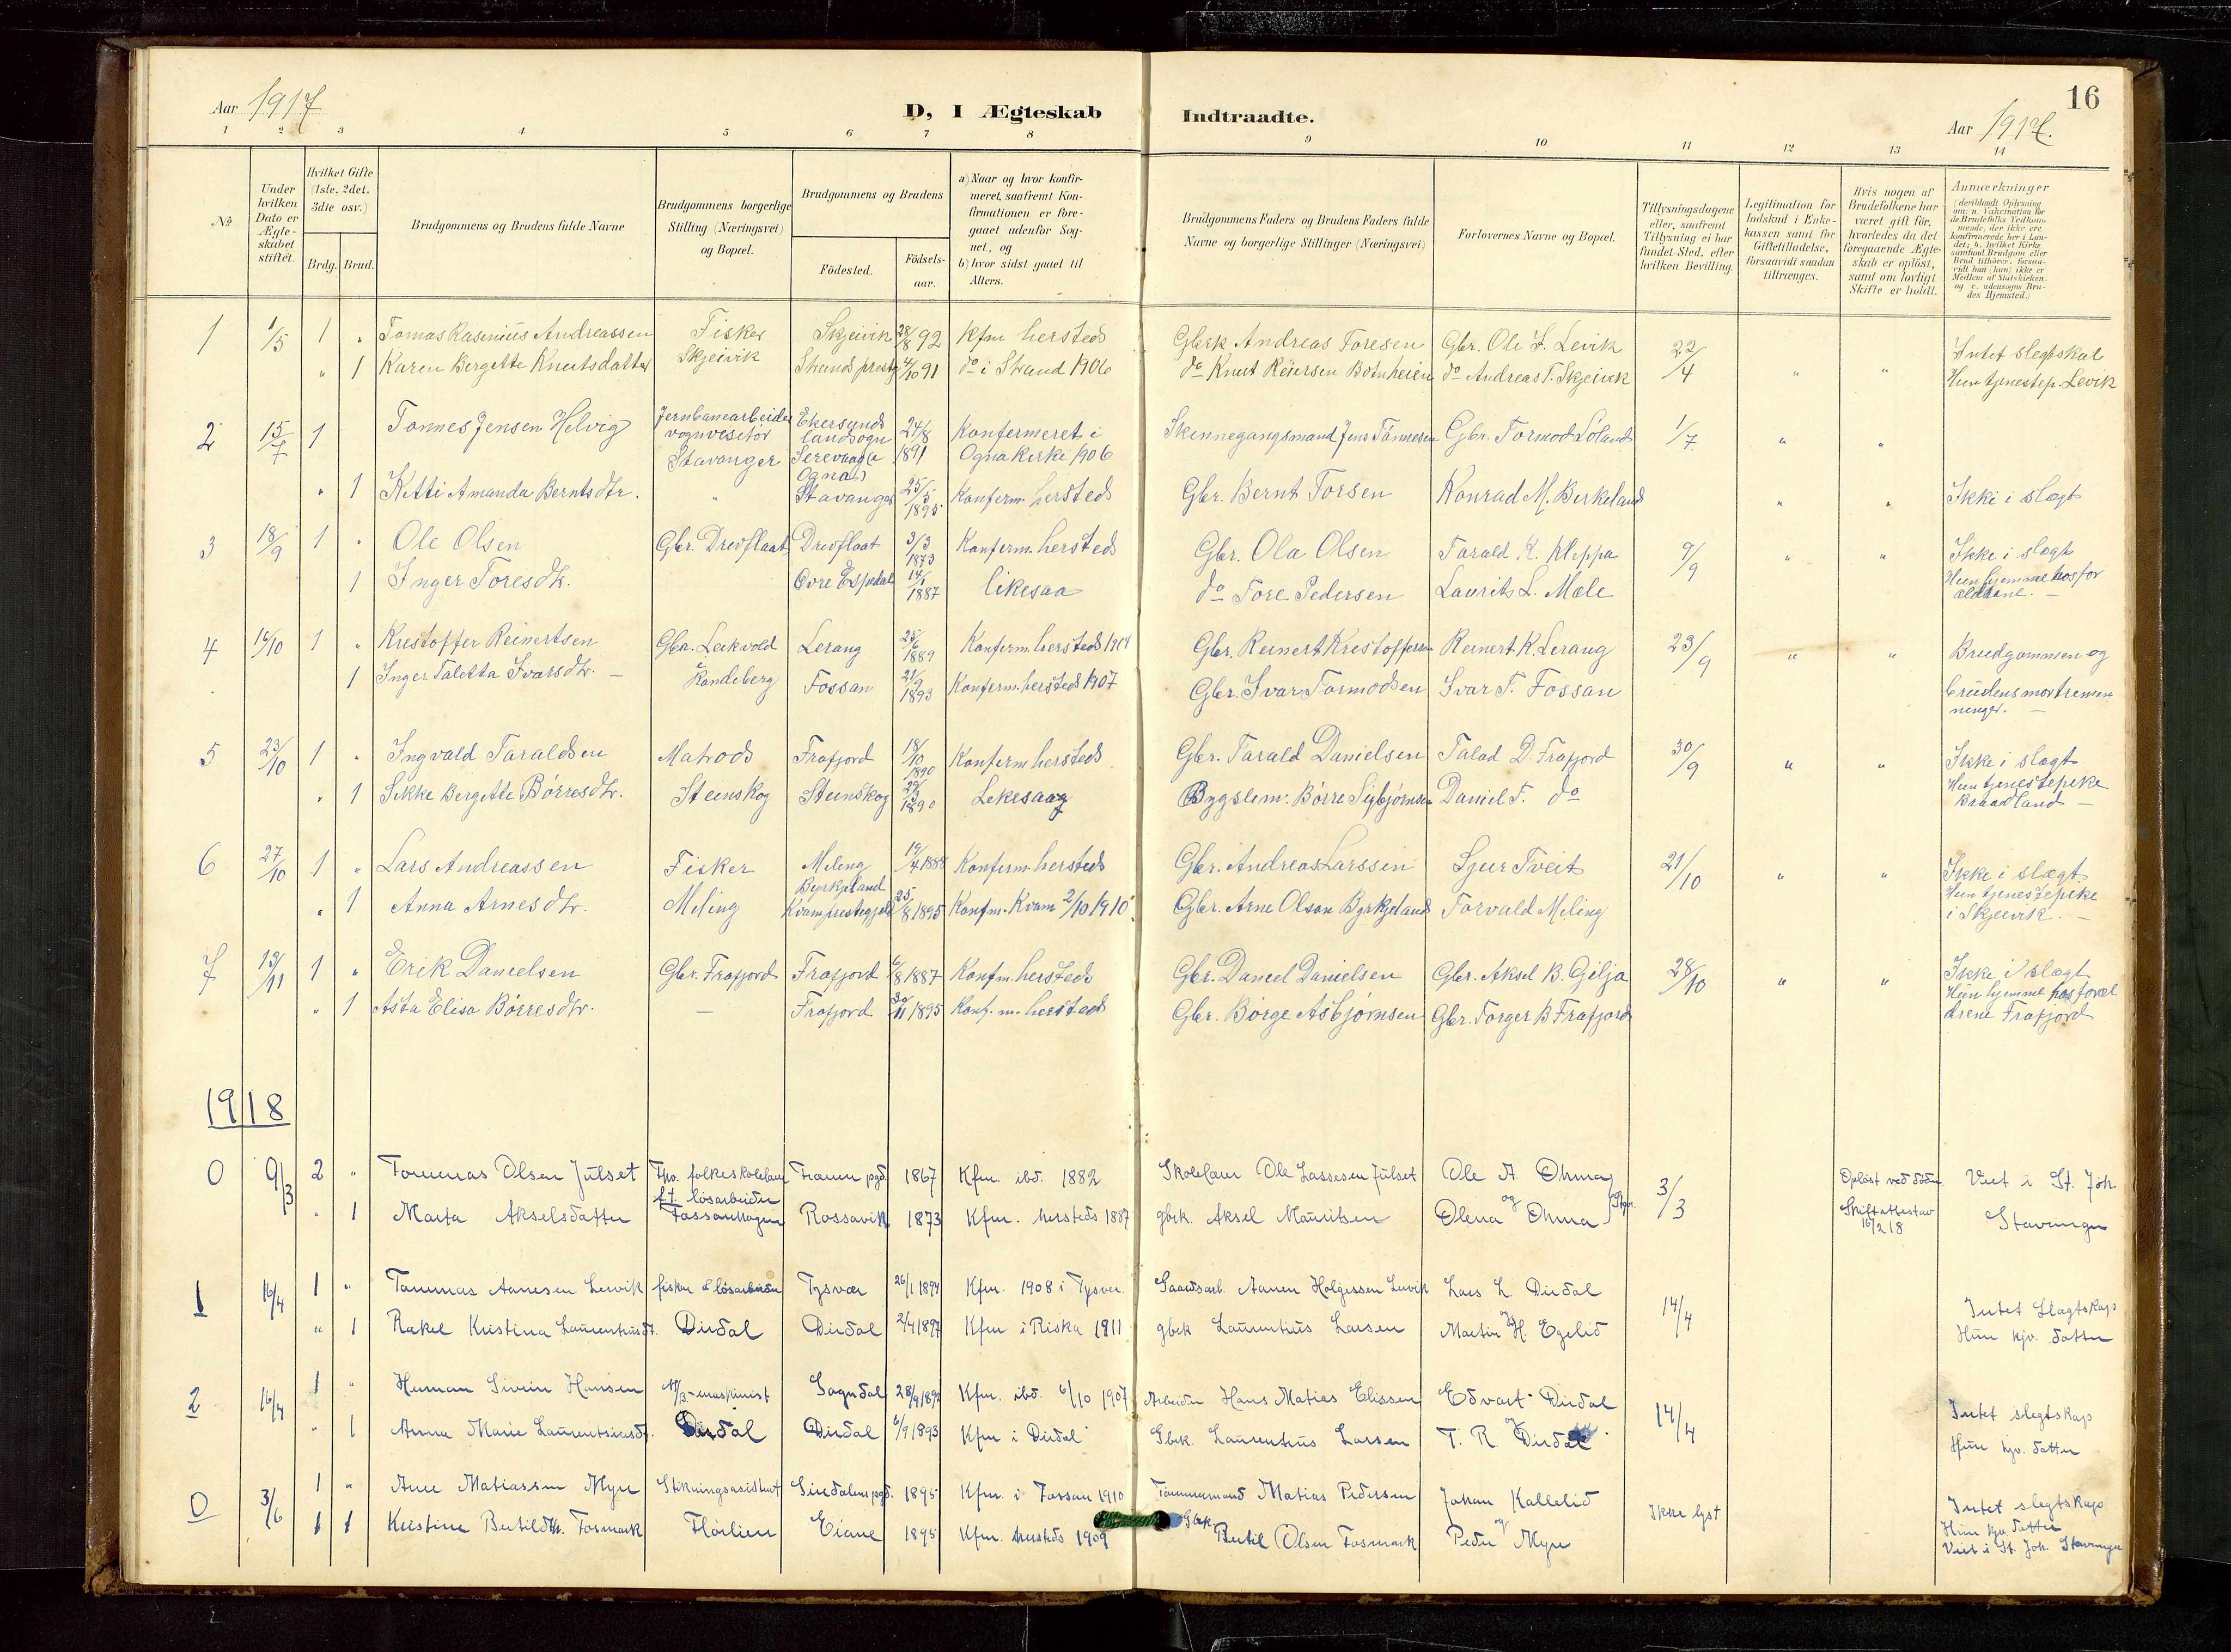 Aar 1917
D, I Ægteskab
Indtraadte.
16
Aar 1917.
1 2 3 4 5 6 7 8 9 10 11 12 13 14
№
Under hvilken Dato er Ægteskabet stiftet.
Hvilket Gifte (1ste, 2det, 3die osv.)
Brdg. Brud.
Brudgommens og Brudens fulde Navne
Brudgommens borgerlige Stilling (Næringsvei) og Bopæl.
Brudgommens og Brudens
Födested.
Födselsaar.
a) Naar og hvor konfirmeret, saafremt Konfirmationen er foregaaet udenfor Sognet, og
b) hvor sidst gaaet til Alters.
Brudgommens Faders og Brudens Faders fulde Navne og borgerlige Stillinger (Næringsvei)
Forlovernes Navne og Bopæl.
Tillysningsdagene eller, saafremt Tillysning ei har fundet Sted, efter hvilken Bevilling.
Legitimation for Indskud i Enkekassen samt for Giftetilladelse, forsaavidt saadan tiltrænges.
Hvis nogen af Brudefolkene har været gift før, hvorledes da det foregaaende Ægteskab er opløst, samt om lovligt Skifte er holdt.
Anmærkninger (deriblandt Oplysning om: a. Vakcination for de Brudefolks Vedkommende, der ikke ere konfirmerede her i Landet; b. hvilket Kirkesamfund Brudgom eller Brud tilhører, forsaavidt han (hun) ikke er Medlem af Statskirken, og c. udensogns Brudes Hjemsted.)
1 1/5 1 " Tomas Rasmus Andreassen Fisker Skjeivik 28/8 92 Kfm hersteds Gbrk Andreas Toresen Gbr. Ole J. Levik 22/4 " " Intet slegtskal
" 1 Karen Bergitte Knutsdatter Skjeivik Strands prestg 4/10 91 do i Strand 1906 do Knut Reiersen Botnheien do Andreas T. Skjeivik Hun tjenestep. Levik
2 15/7 1 Tønnes Jensen Helvig Jernbanearbeider vognvisitør Stavanger Ekersunds landsogn (Ogna) 24/8 1891 Konfermeret i Ogna Kirke 1906 Skinnegangsmand Jens Tønnesen Gbr. Tormod Løland 1/7 " "
" 1 Kitti Amanda Berntsdtr. " Stavanger 25/5 1895 Konferm. hersteds Gbr. Bernt Torsen Konrad M. Birkeland " " Ikke i slegt
3 18/9 1 " Ole Olsen Gbr. Drevflaat Drevflaat 3/3 1873 Konferm. hersteds Gbr. Ola Olsen Tarald K. Kleppa 9/9 " " Ikke i slegt
1 Inger Toresdtr. Øvre Espedal 14/1 1887 likesaa do Tore Pedersen Laurits L. Mæle Hun hjemme hos for ældrene. —
4 16/10 1 " Kristoffer Reinertsen Gbr. Leikvold Lerang 25/6 1889 Konferm. hersteds 1904 Gbr. Reinert Kristoffersen Reinert K. Lerang 23/9 " " Brudgommen og
1 Inger Taletta Ivarsdtr. — Randeberg Fossan 21/9 1893 Konferm. hersteds 1907 Gbr. Ivar Tormodsen Ivar T. Fossan brudens mor tremenninger. —
5 23/10 1 " Ingvald Taraldsen Matros Frafjord 18/10 1890 Konferm hersteds Gbr. Tarald Danielsen Talad D. Frafjord 30/9 " " Ikke i slagt
" 1 Sikke Bergitte Børresdtr. Steinskog Steinskog 1890 Likesaa Bygslem. Børre Seibjørnsen Daniel T. do Hun tjenestepike Braadland —
6 27/10 1 " Lars Andreassen Fisker Meling 19/4 1888 Konferm. hersteds Gbr. Andreas Larssen Sjur Tveit 21/10 " " Ikke i slægt
" 1 Anna Arnesdtr. Meling Byrkjeland Kvam prestegjeld 25/8 1895 Konfm. Kvam 2/10 1910. Gbr. Arne Olson Byrkjeland Torvald Meling Hun tjenestepike i Skjeivik. —
7 13/11 1 " Erik Danielsen Gbr. Frafjord Frafjord 6/8 1887 Konfm. hersteds Gbr. Daniel Danielsen Gbr. Aksel B. Gilja 28/10 " " Ikke i slægt
" 1 Asta Elisa Børresdtr. — Frafjord 30/11 1895 Konf. m. hersteds Gbr. Børge Asbjørnsen Gbr. Torger B Frafjord Hun hjemme hos forældrene Frafjord
1918
0 9/3 2 " Tommas Olsen Julset fho. folkeskolelærer f.t. løsarbeider Fræna pgd. 1867 Kfm. ibd. 1882 Skolelærer Ole Lassesen Julset Ole A. Ohma 3/3 Opløst ved døden Viet i St. Joh.
" 1 Marta Akselsdatter Fossanmogen Rossavik 1873 Kfm. hersteds 1887 gbrk. Aksel Mauritsen og Olena Ohma Skifteattest av 16/2 18 Stavanger
1 16/4 1 " Tommas Aanesen Lervik fisker & løsarbeider Tysvær 26/1 1894 Kfm. 1908 i Tysvær. Gaardsarb. Aanen Holgessen Lervik Lars L. Dirdal 14/4 Intet Slagtskap
" 1 Rakel Kristina Laurentiusdt. Dirdal Dirdal 2/4 1897 Kfm i Riska 1911 gbrk Laurentius Larsen Martin H. Egelid Hun hjv. datter
2 16/4 1 " Herman Sivrin Hansen maskinist Sogndal 28/9 1892 Kfm. ibd. 6/10 1907 Arbeider Hans Matias Elissen Edvart Dirdal 14/4 Intet slegtskap
" 1 Anna Marie Laurentsiusdt. Dirdal Dirdal 6/9 1893 Kfm i Dirdal Gbrk. Laurentius Larsen T. R. Dirdal Hun hjv. datter
0 3/6 1 " Arne Matiassen Myre Stikningsasistent Sirdalens pgd. 1895 Kfm. i Fossan 1910 Tømmermand Matias Pedersen Johan Kallelid Ikke lyst Intet slegtskap
1 1 Kristine Bertilsdtr. Fosmark Flørlien Eiane 1895 Kfm. hersteds 1909 Gbk. Bertil Olsen Fosmark og Peder Myre Hun hjv. datter
Viet i St. Joh. Stavanger